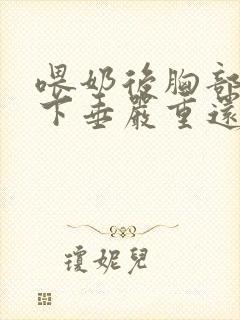 喂奶後胸部
下垂嚴重還
瓊妮兒